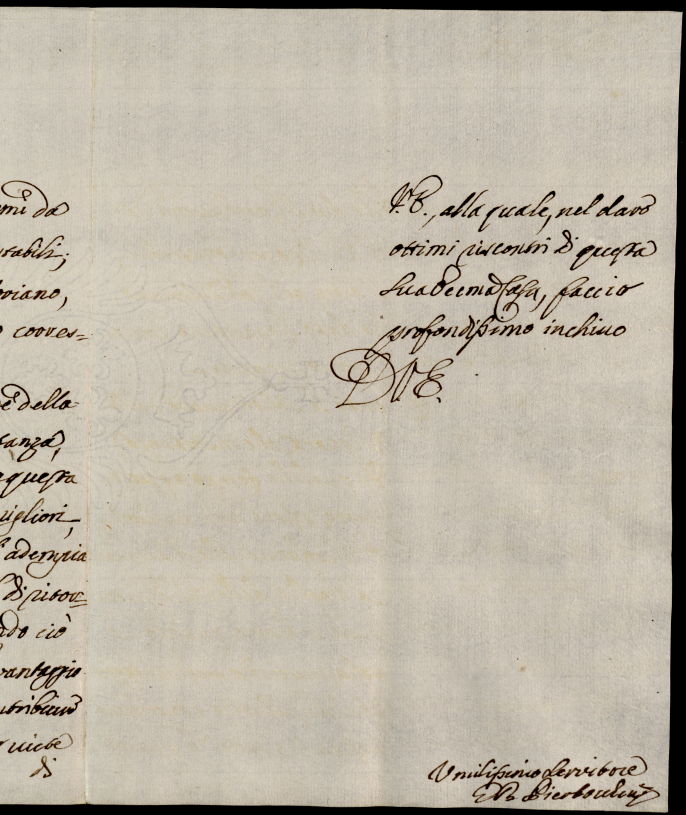 mi da
tabili;
boiano,
o corres=
è della
tanza,
questa
migliori,
adempia
di ritor=
ndo ciò
vantaggio
ntribuire
viene
di
V.E., alla quale, nel dare
ottimi riscontri di questa
Sua Ecc.ma Casa, faccio
profondissimo inchino
D V.E.
Umilissimo Servitore